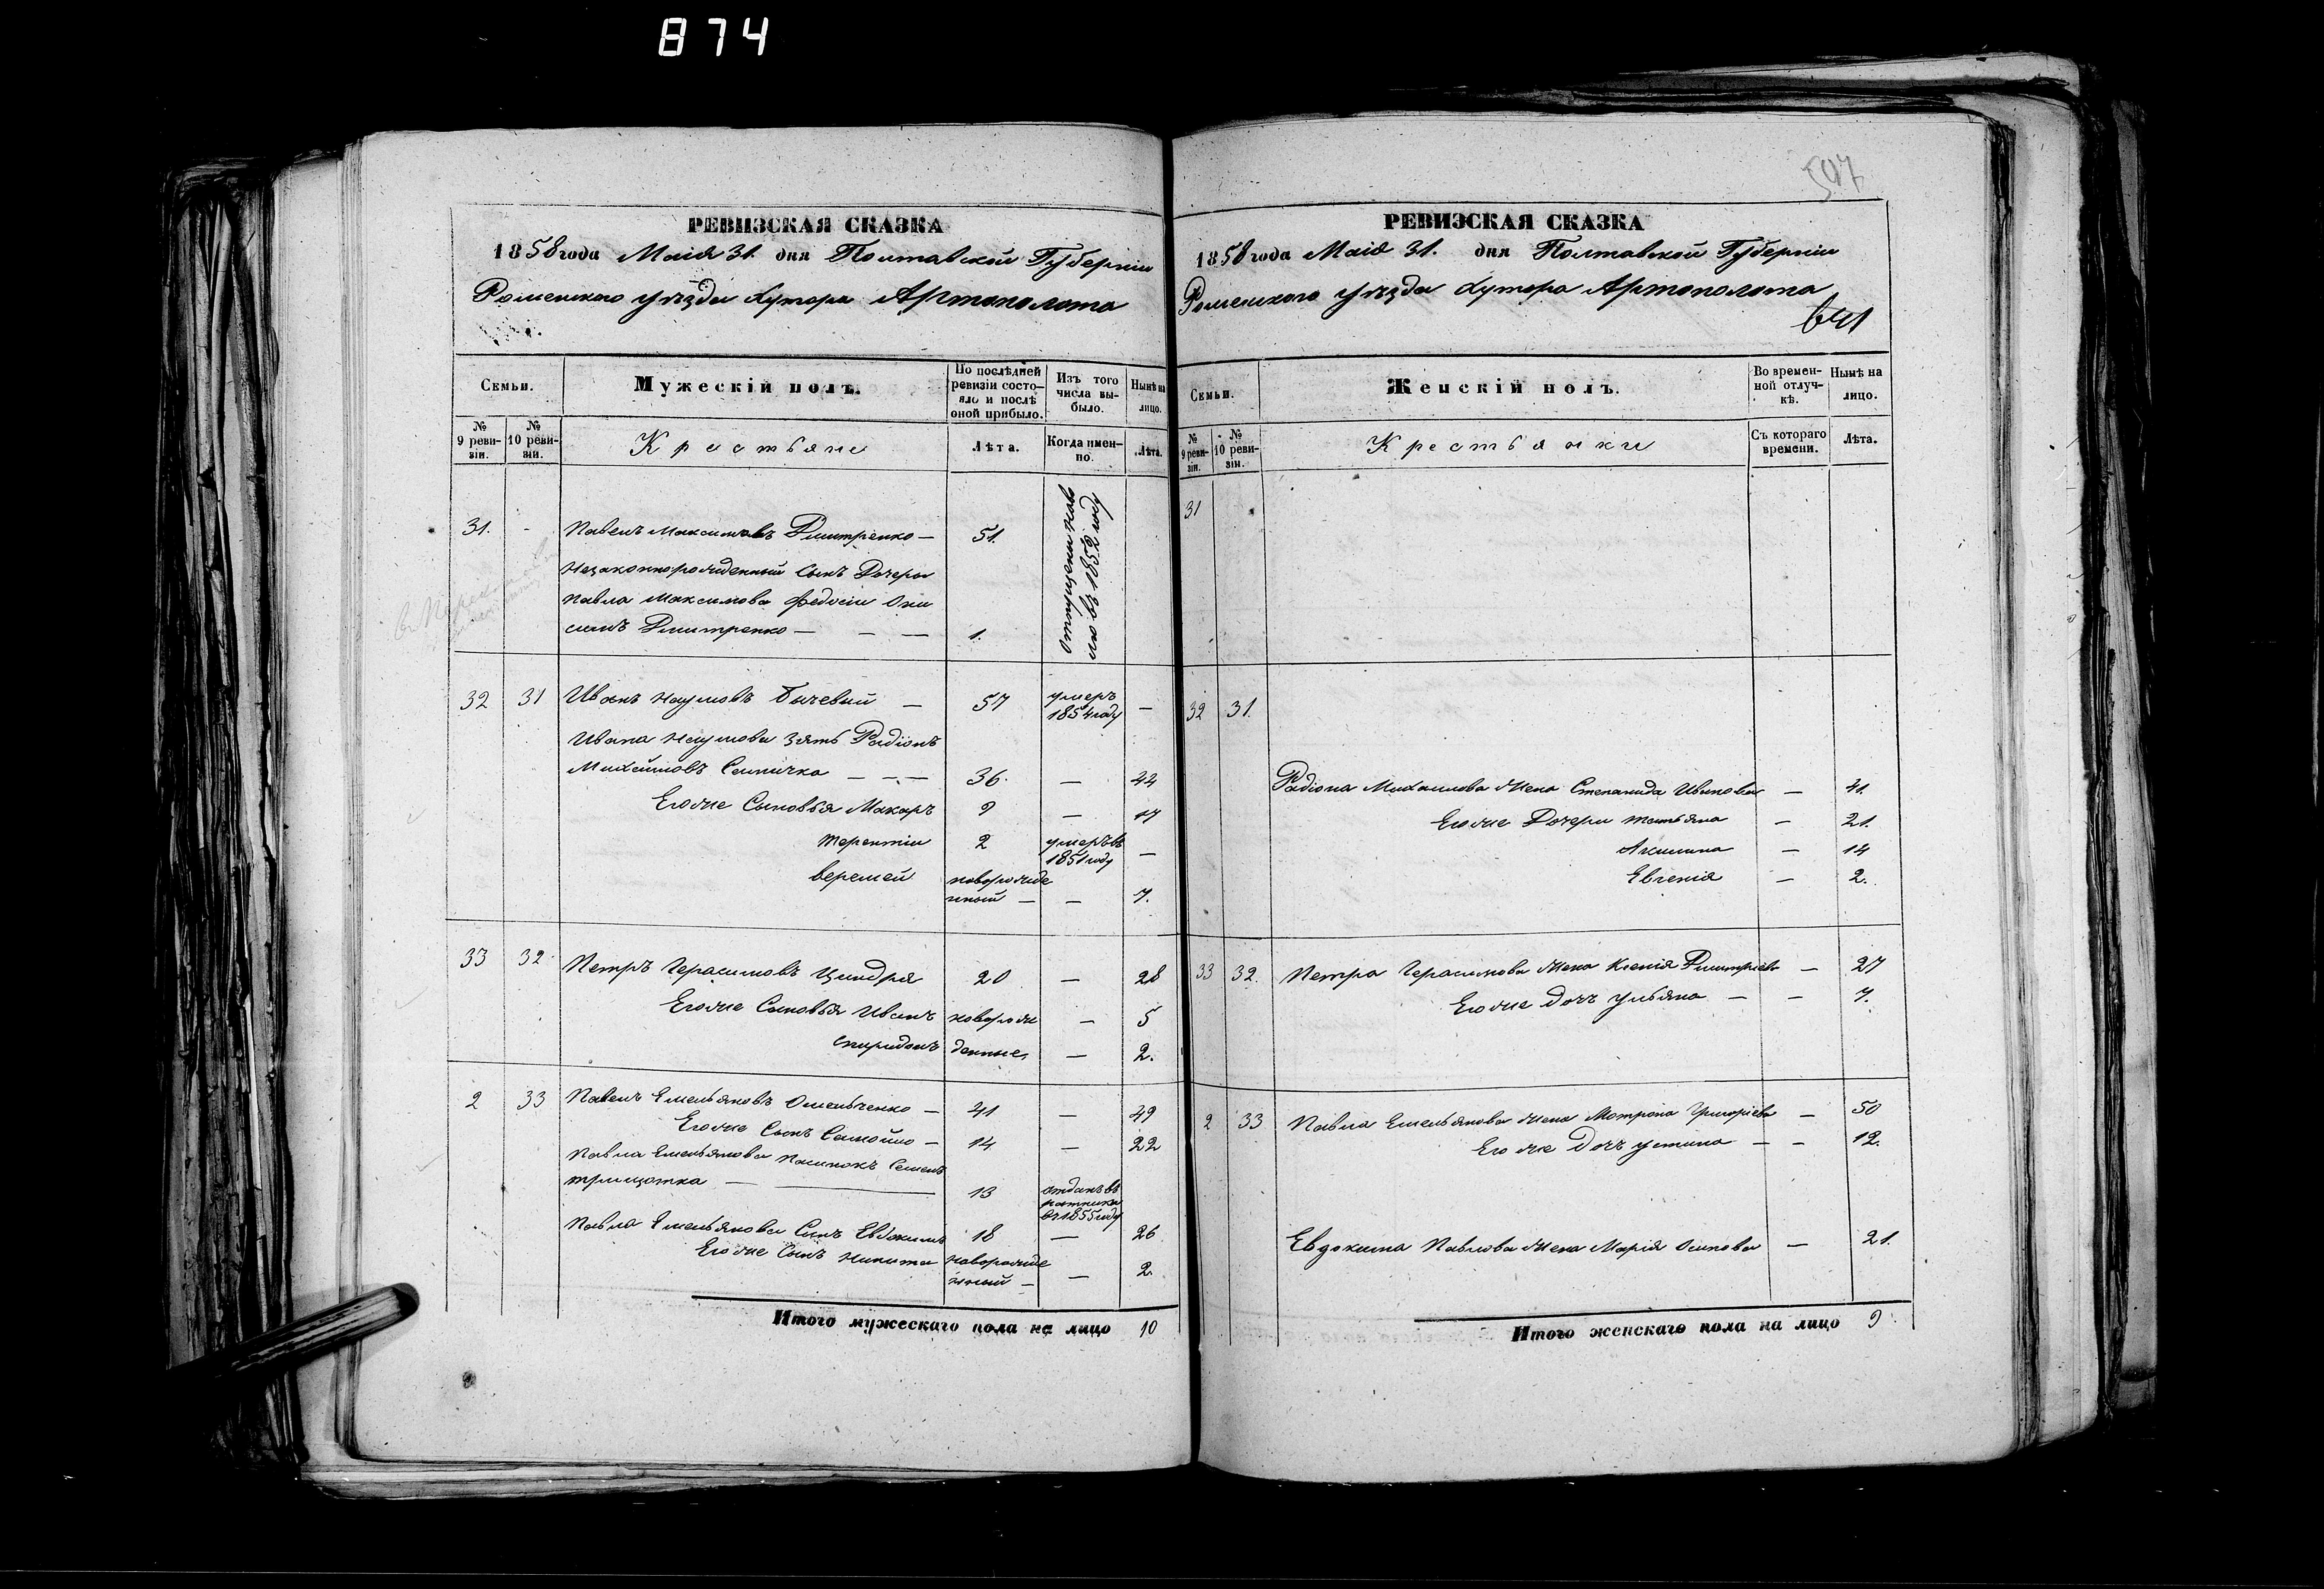 874
507
РЕВИЗСКАЯ СКАЗКА
1858 года Маія 31. дня Полтавской Губерніи
Роменского уѣзда Хутора Артополота
Семьи.
Мужескій полъ.
По послѣдней ревизіи состояло и послѣ оной прибыло.
Изъ того числа выбыло.
Нынѣ на лицо.
№ 9 ревизіи.
№ 10 ревизіи.
Крестьяне
Лѣта.
Когда именно.
Лѣта.
31. - Павелъ Максимовъ Дмитренко — 51.
Незаконнорожденный сынъ Дочери
Павла Максимова Федосіи Они
симъ Дмитренко — — — 1.
Отпущены на во
лю въ 1852 году
32 31 Иванъ Наумовъ Бичевый — 57 умеръ 1854 году —
Ивана Наумова зять Радіонъ
Михайловъ Семичка — — — 36. — 44
Егоже Сыновья Макаръ 9 — 17
Терентій 2 умеръ въ 1851 году —
Веремей новорожденный — — 7.
33 32. Петръ Герасимовъ Циндря 20 — 28
Егоже Сыновья Иванъ новорож — 5
Спиридонъ денные. — 2.
2 33 Павелъ Емельяновъ Омельченко — 41 — 49
Егоже Сынъ Самойло — 14 — 22
Павла Емельянова Пасынокъ Семенъ
13 отданъ въ
въ 1855 году
Павла Емельянова Сынъ Евдокимъ 18 — 26
Егоже Сынъ Никита новорожденный — — 2.
Итого мужескаго пола на лицо 10
РЕВИЗСКАЯ СКАЗКА
1858 года Маія 31. дня Полтавской Губерніи
Роменского уѣзда Хутора Артополота
Семьи.
Женскій полъ.
Во временной отлучкѣ.
Нынѣ на лицо.
№ 9 ревизіи.
№ 10 ревизіи.
Крестьянки
Съ котораго времени.
Лѣта.
31
32 31.
Радіона Михаилова Жена Степанида Иванова — 41.
Егоже Дочери Татьяна — 21.
Акилина — 14
Евгенія — 2.
33 32. Петра Герасимова Жена Ксенія Дмитріева — 27
Егоже дочь Ульяна — — 7.
2 33 Павла Емельянова Жена Матрона Григоріева — 50
Егоже Дочь Устина — — 12.
Евдокима Павлова Жена Марія Осипова — 21.
Итого женскаго пола на лицо 9